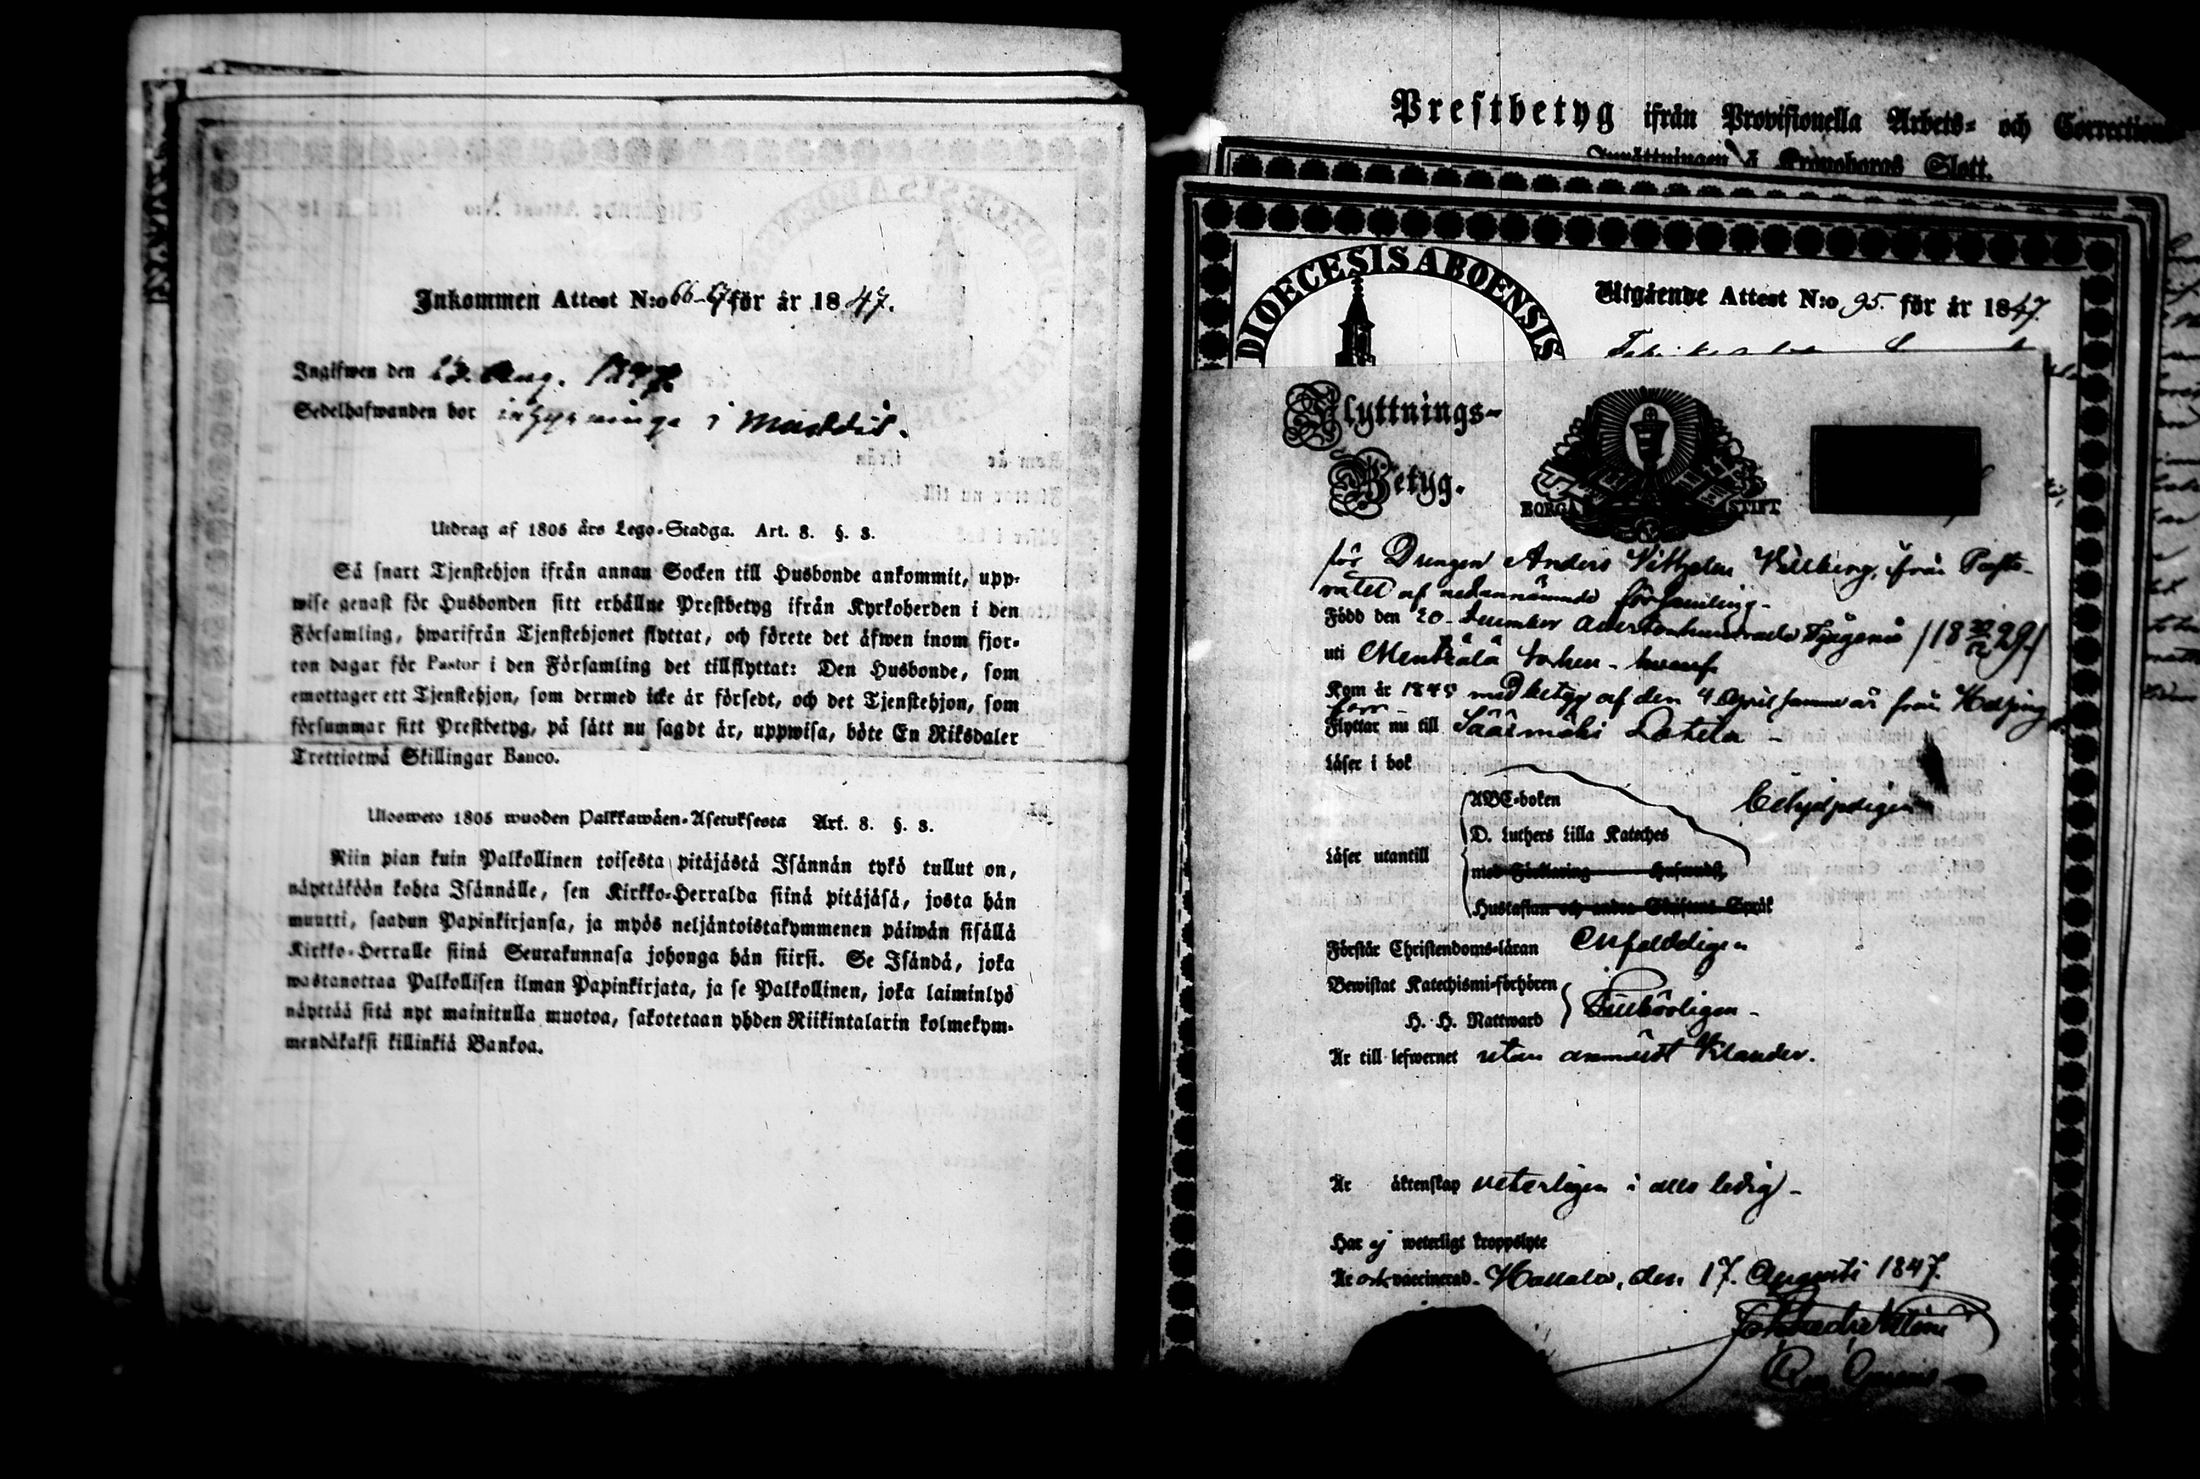 Inkommen Attest N:o 66-67 för år 1847.
Ingifwen den 23. Aug. 1847.
Sedelhafwanden bor inhyringe i
Utdrag af 1805 års Lego-Stadga. Art. 8. §. 3.
Så snart Tjenstehjon ifrån annan Socken till Husbonde ankommit, upp-
wise genast för Husbonden sitt erhållne Prestbetyg ifrån Kyrkoherden i den
Församling, hwarifrån Tjenstehjonet flyttat, och förete det äfwen inom fjor-
ton dagar för Pastor i den Församling det tillflyttat: Den Husbonde, som
emottager ett Tjenstehjon, som dermed icke är försedt, och det Tjenstehjon, som
försummar sitt Prestbetyg, på sätt nu sagdt är, uppwisa, böte En Riksdaler
Trettiotwå Skillingar Banco.
Ulosweto 1805 wuoden Palkkawäen-Asetuksesta Art. 8. §. 3.
Niin pian kuin Palkollinen toisesta pitäjästä Isännän tykö tullut on,
näyttäköön kohta Isännälle, sen Kirkko-Herralda siinä pitäjäsä, josta hän
muutti, saadun Papinkirjansa, ja myös neljäntoistakymmenen päiwän sisällä
Kirkko-Herralle siinä Seurakunnasa johonga hän siirsi. Se Isändä, joka
wastanottaa Palkollisen ilman Papinkirjata, ja se Palkollinen, joka laiminlyö
näyttää sitä nyt mainitulla muotoa, sakotetaan yhden Riikintalarin kolmekym-
mendäkaksi killinkiä Bankoa.
Prestbetyg ifrån Provisionella Arbets- och Correctione
Inrättningen å Kronoborgs Slott.
DIOECESIS ABOENSIS
Utgående Attest N:o 95. för år 1847.
Flyttnings-
Betyg.
BORGÅ STIFT
för Drengen Anders Vilhelm Killberg, ifrån Pasto-
ratet af nedannämnde församling -
Född den 20 December adertonhundrade Tjugenie /18 20/12 29/
uti Mentzälä socken -
Kom år 1845 med betyg af den 4 April samma år från Helsing
fors -
Flyttar nu till Sääxmäki Lahela -
Läser i bok
ABC-boken
D. Luthers Lilla Kateches
Läser utantill
med Förklaring Husundst.
Hustaflan och andra Skriftens Språk
Förstår Christendoms-läran Enfaldigen
Bewistat Katechismi-förhören
H. H. Nattward
Tillbörligen -
Är till lefwernet utan anmärkt Klander.
Är äktenskap veterligen i allo ledig -
Har ej weterligt kroppslyte
Är och vaccinerad - Hattula, den 17. Augusti 1847.